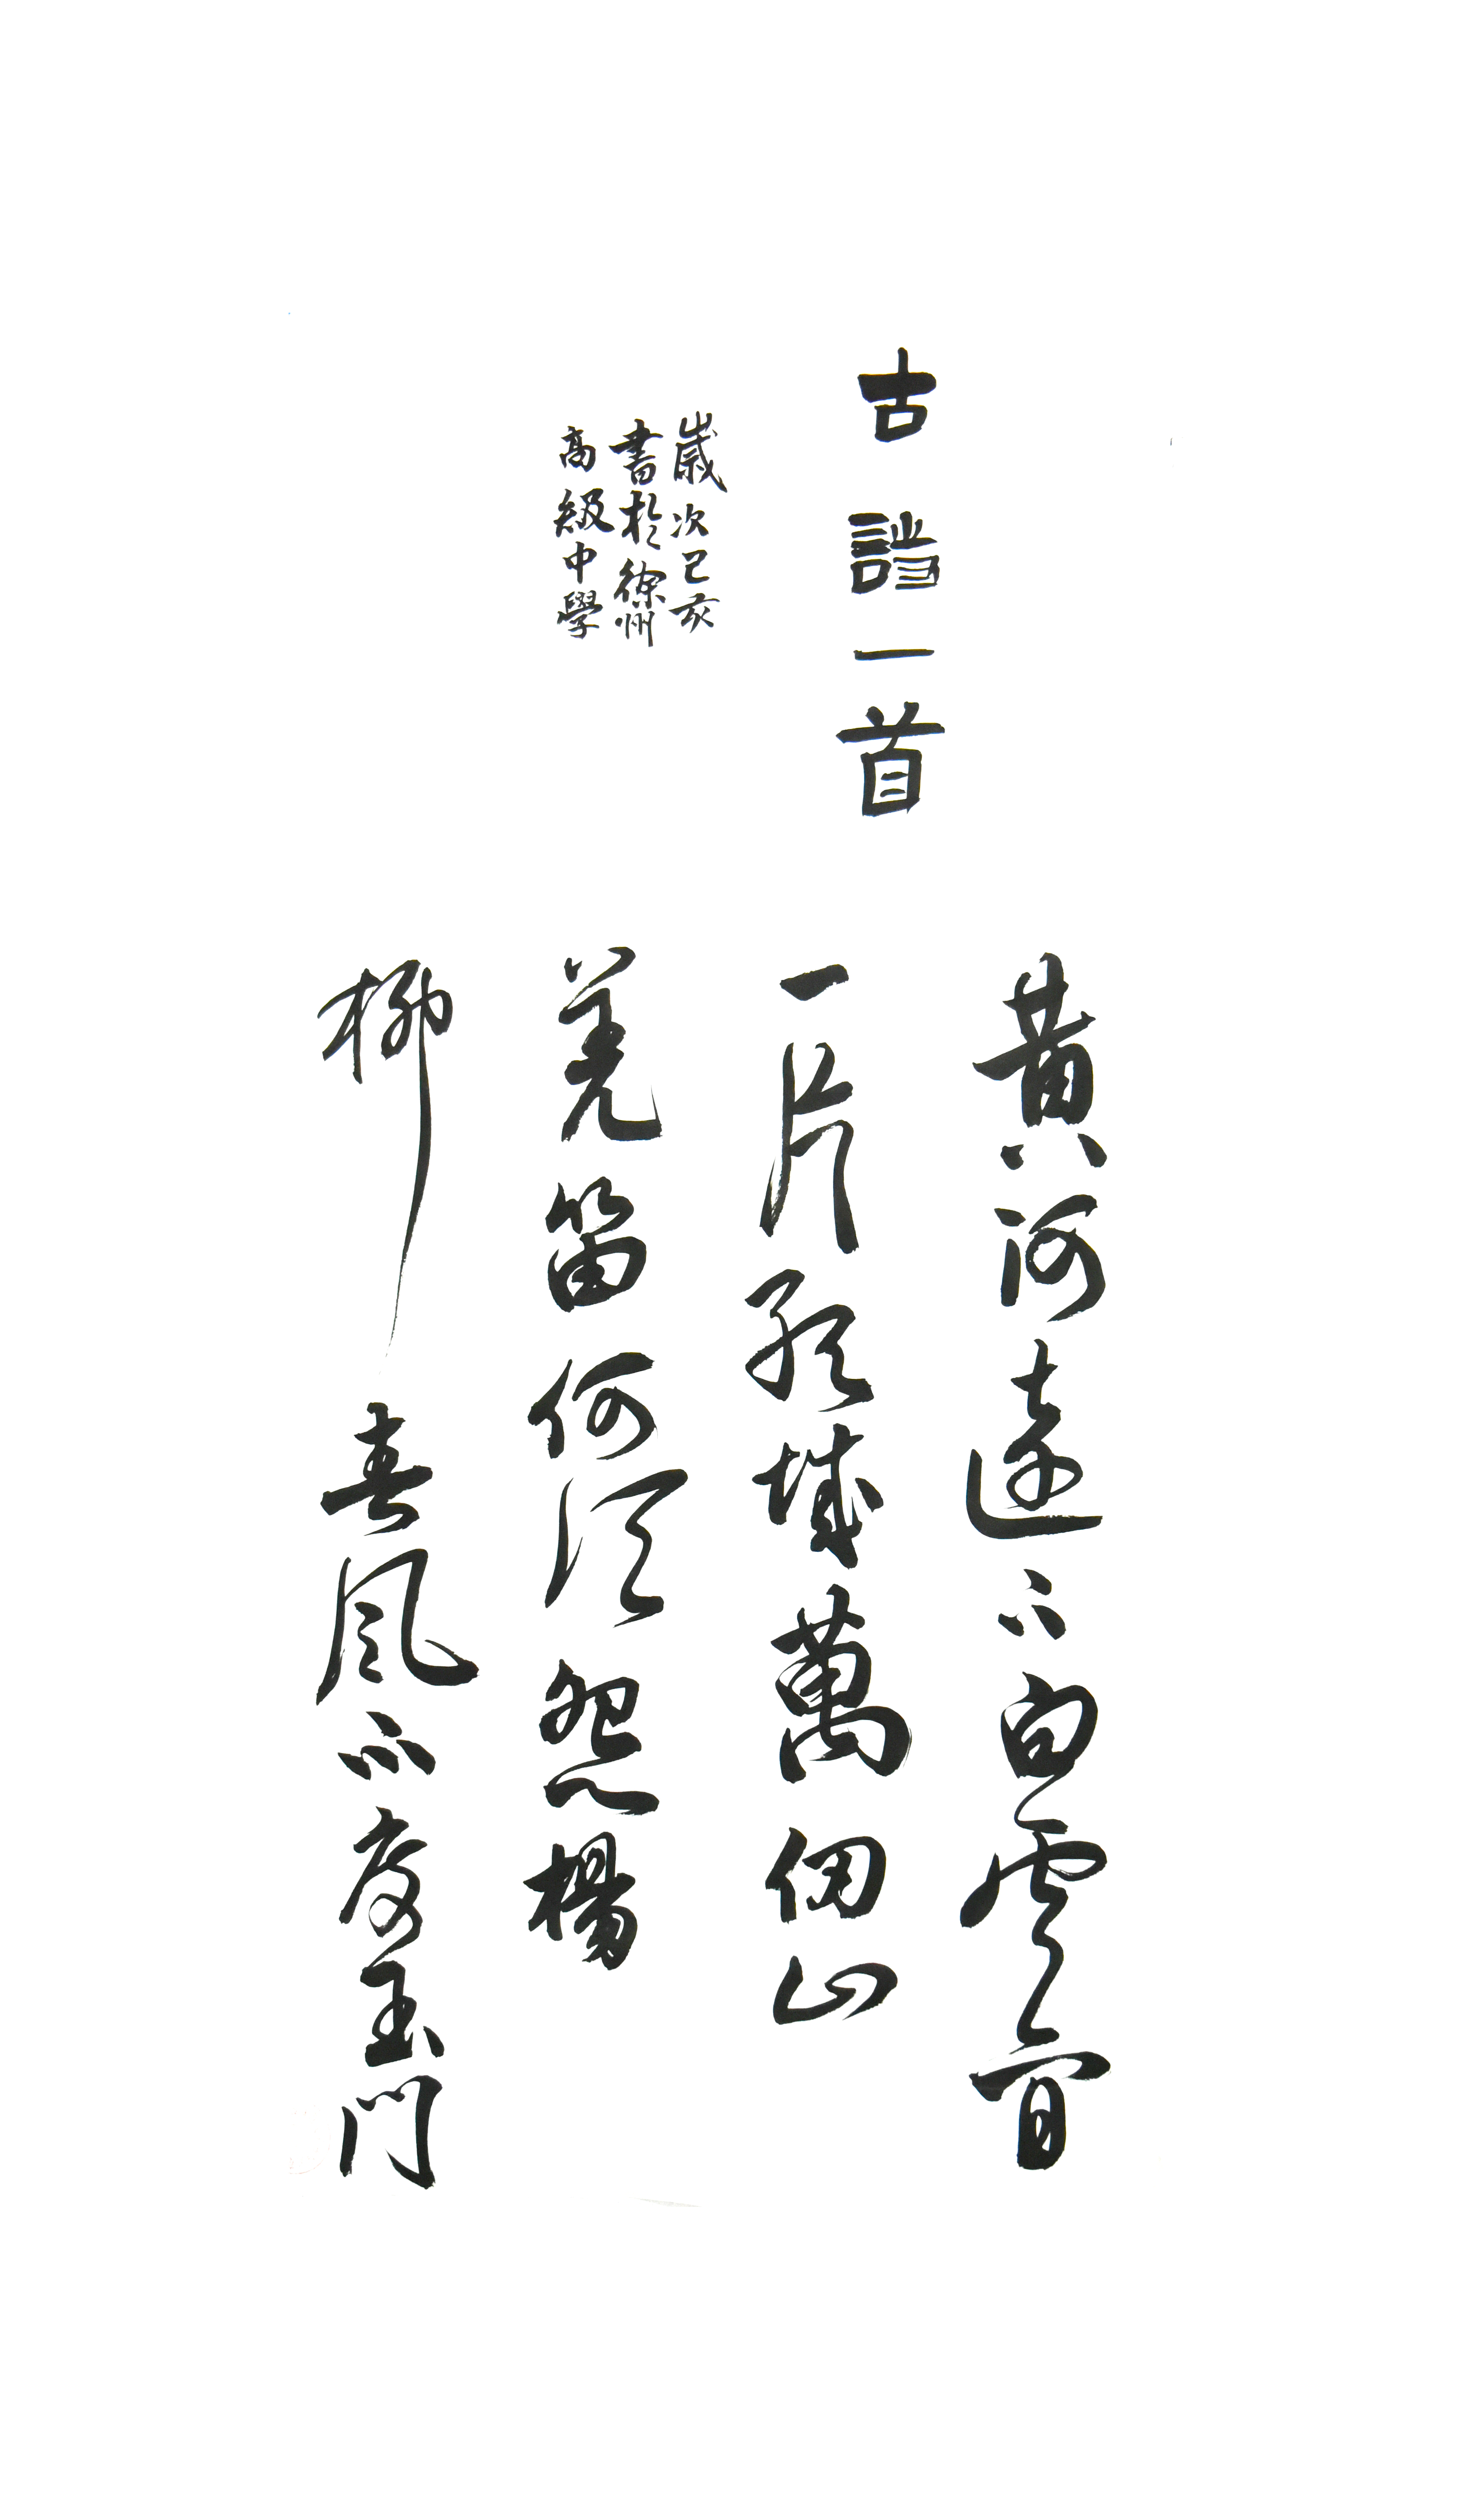 古詩一首
黃河遠上白雲間
一片孤城萬仞山
羌笛何須怨楊
柳春風不度玉門
歲次己亥
書於術
高級中學